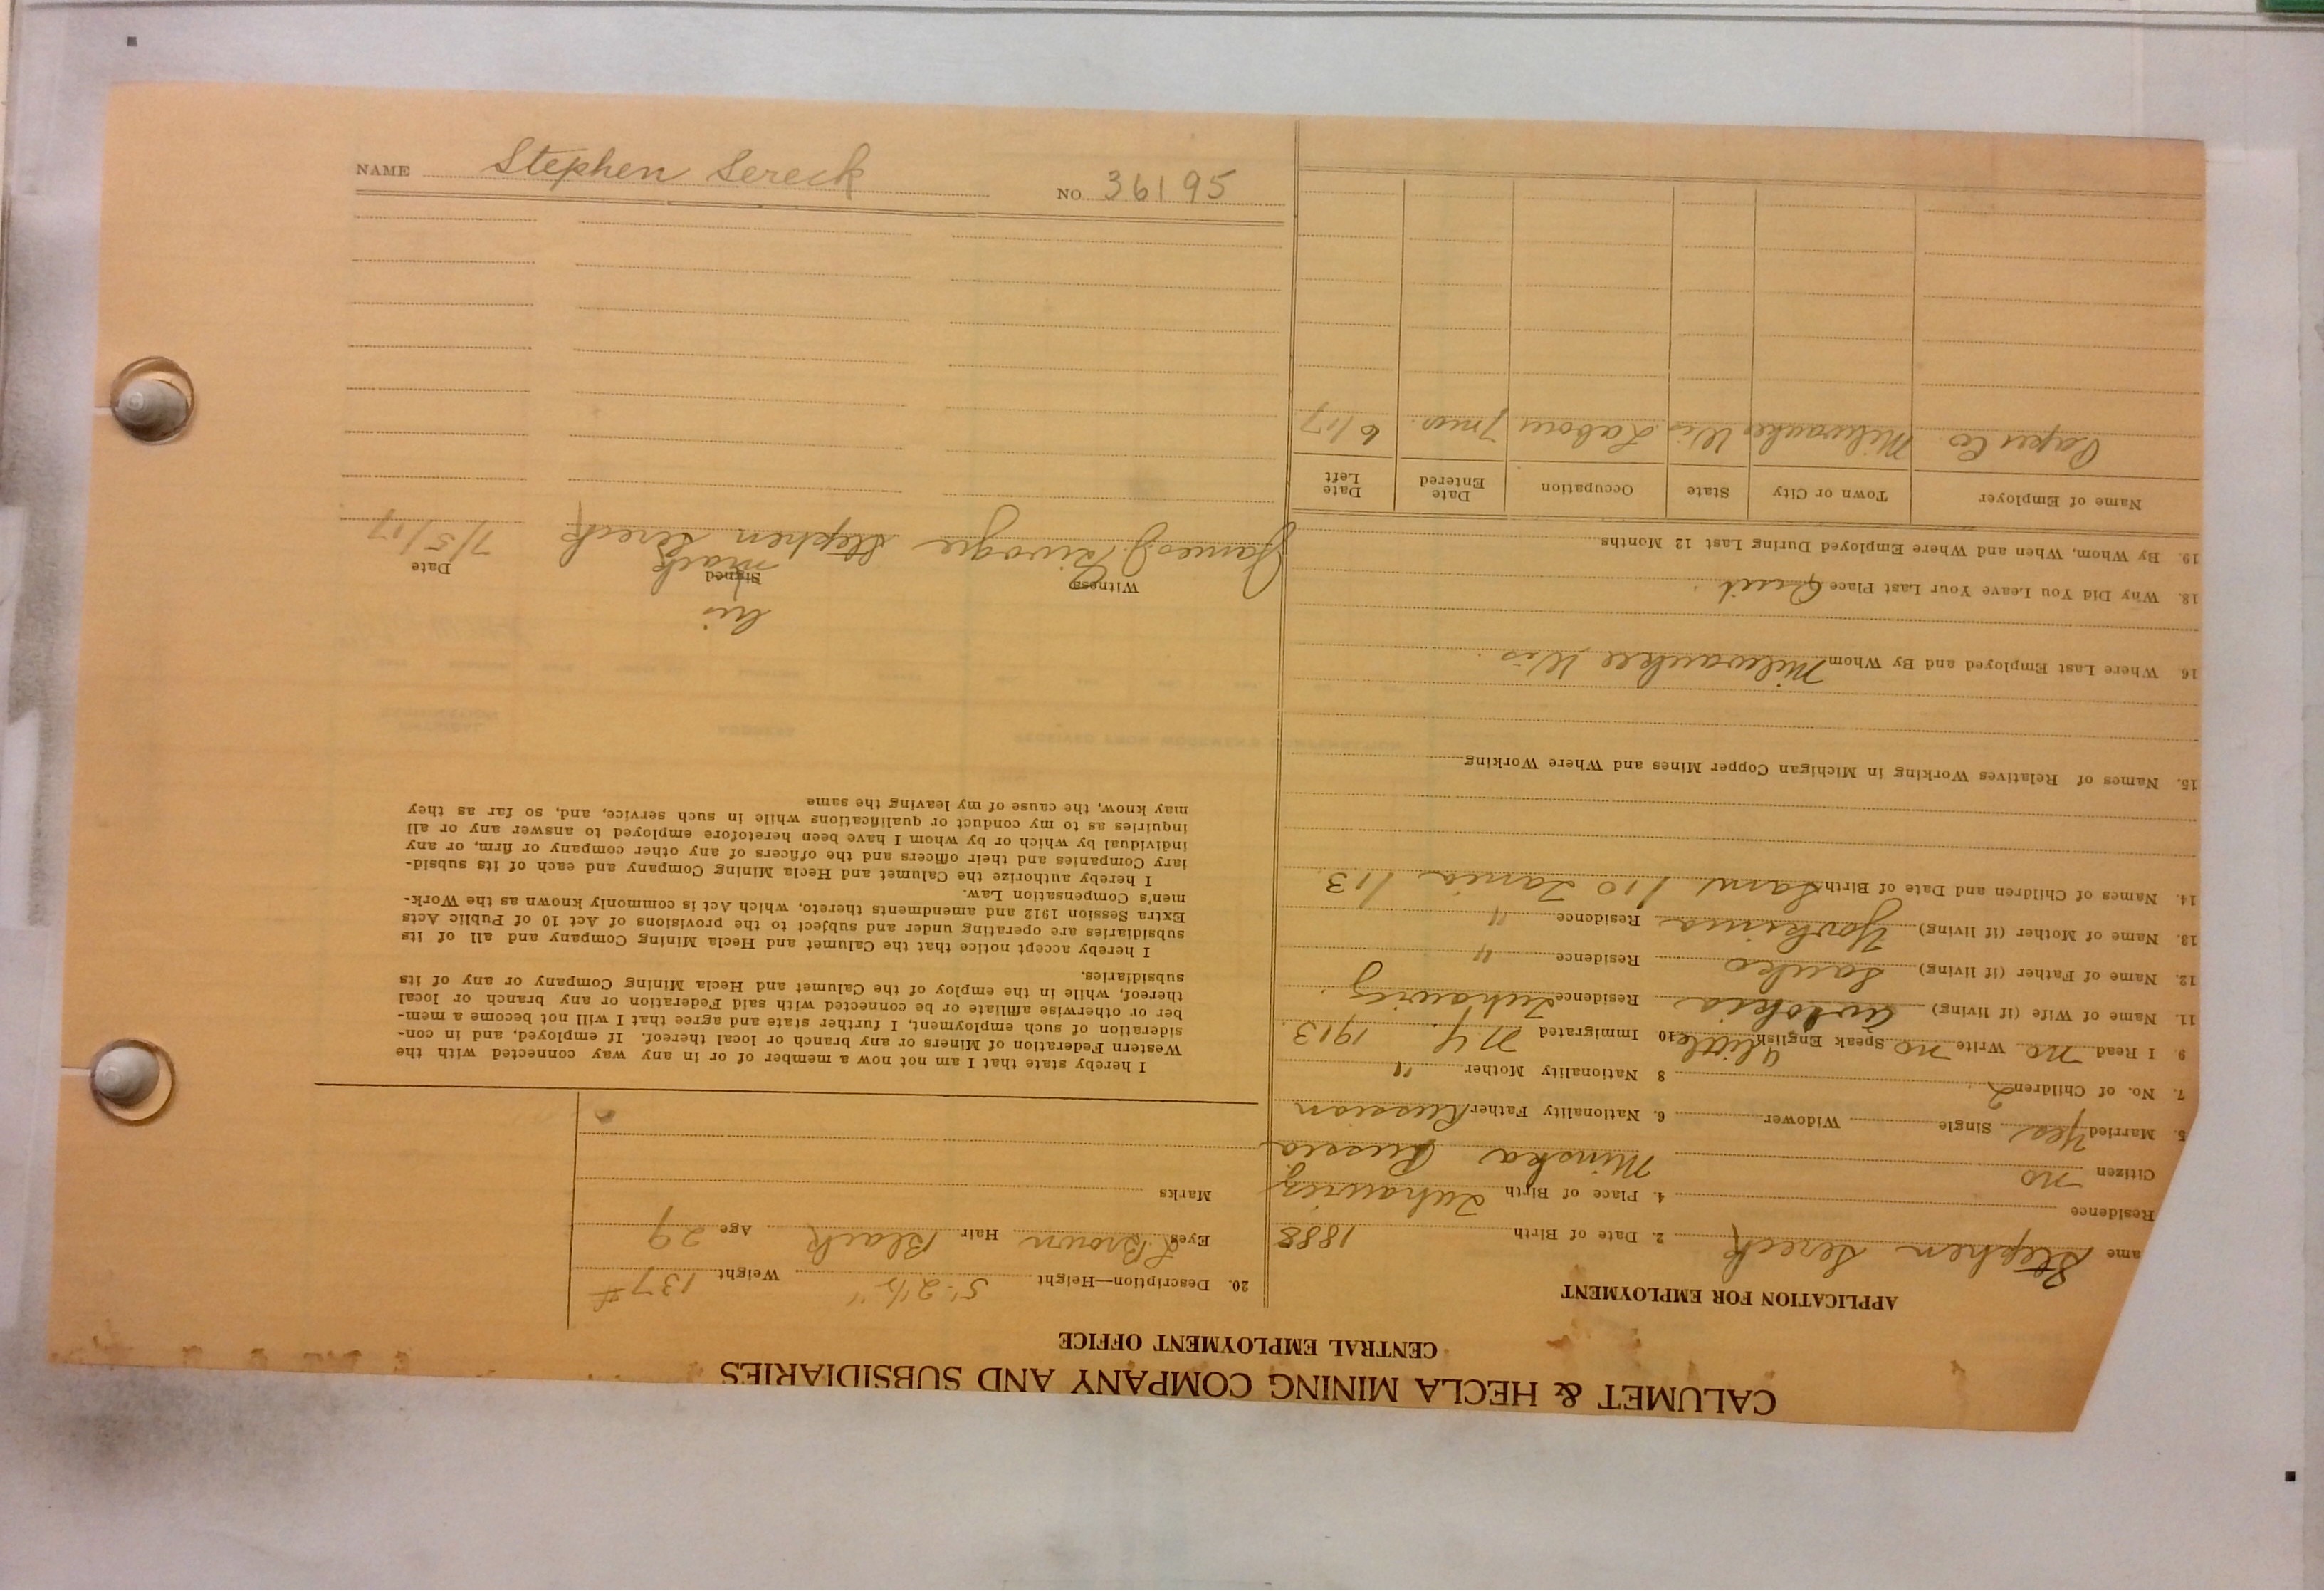 CALUMET & HECLA MINING COMPANY AND SUBSIDIARIES
CENTRAL EMPLOYMENT OFFICE
APPLICATION FOR EMPLOYMENT
ame Stephen Sereck 2. Date of Birth 1888
Residence 4. Place of Birth
Citizen no Minska Russia
5. Married Yes Single Widower 6. Nationality Father Russian
7. No. of Children 2 8 Nationality Mother "
9 I Read no Write no Speak English a little 10 Immigrated N.Y. 1913
11. Name of Wife (if living) Residence
12. Name of Father (if living) Residence "
13. Name of Mother (if living) Residence "
14. Names of Children and Date of Birth /10 /13
15. Names of Relatives Working in Michigan Copper Mines and Where Working
16 Where Last Employed and By Whom Milwaukee Wis.
18. Why Did You Leave Your Last Place Quit
19. By Whom, When and Where Employed During Last 12 Months
Name of Employer Town or City State Occupation Date Entered Date Left
Paper Co. Milwaukee Wis Labour 7 mos. 6/17
20. Description—Height 5'-2 1/2" Weight 137#
Eyes L Brown Hair Black Age 29
Marks
I hereby state that I am not now a member of or in any way connected with the
Western Federation of Miners or any branch or local thereof. If employed, and in con-
sideration of such employment, I further state and agree that I will not become a mem-
ber or otherwise affiliate or be connected with said Federation or any branch or local
thereof, while in the employ of the Calumet and Hecla Mining Company or any of its
subsidiaries.
I hereby accept notice that the Calumet and Hecla Mining Company and all of its
subsidiaries are operating under and subject to the provisions of Act 10 of Public Acts
Extra Session 1912 and amendments thereto, which Act is commonly known as the Work-
men's Compensation Law.
I hereby authorize the Calumet and Hecla Mining Company and each of its subsid-
iary Companies and their officers and the officers of any other company or firm, or any
individual by which or by whom I have been heretofore employed to answer any or all
inquiries as to my conduct or qualifications while in such service, and, so far as they
may know, the cause of my leaving the same
his
Witness Signed Date
mark
James Stephen Sereck 7/5/17
NAME Stephen Sereck NO. 36195